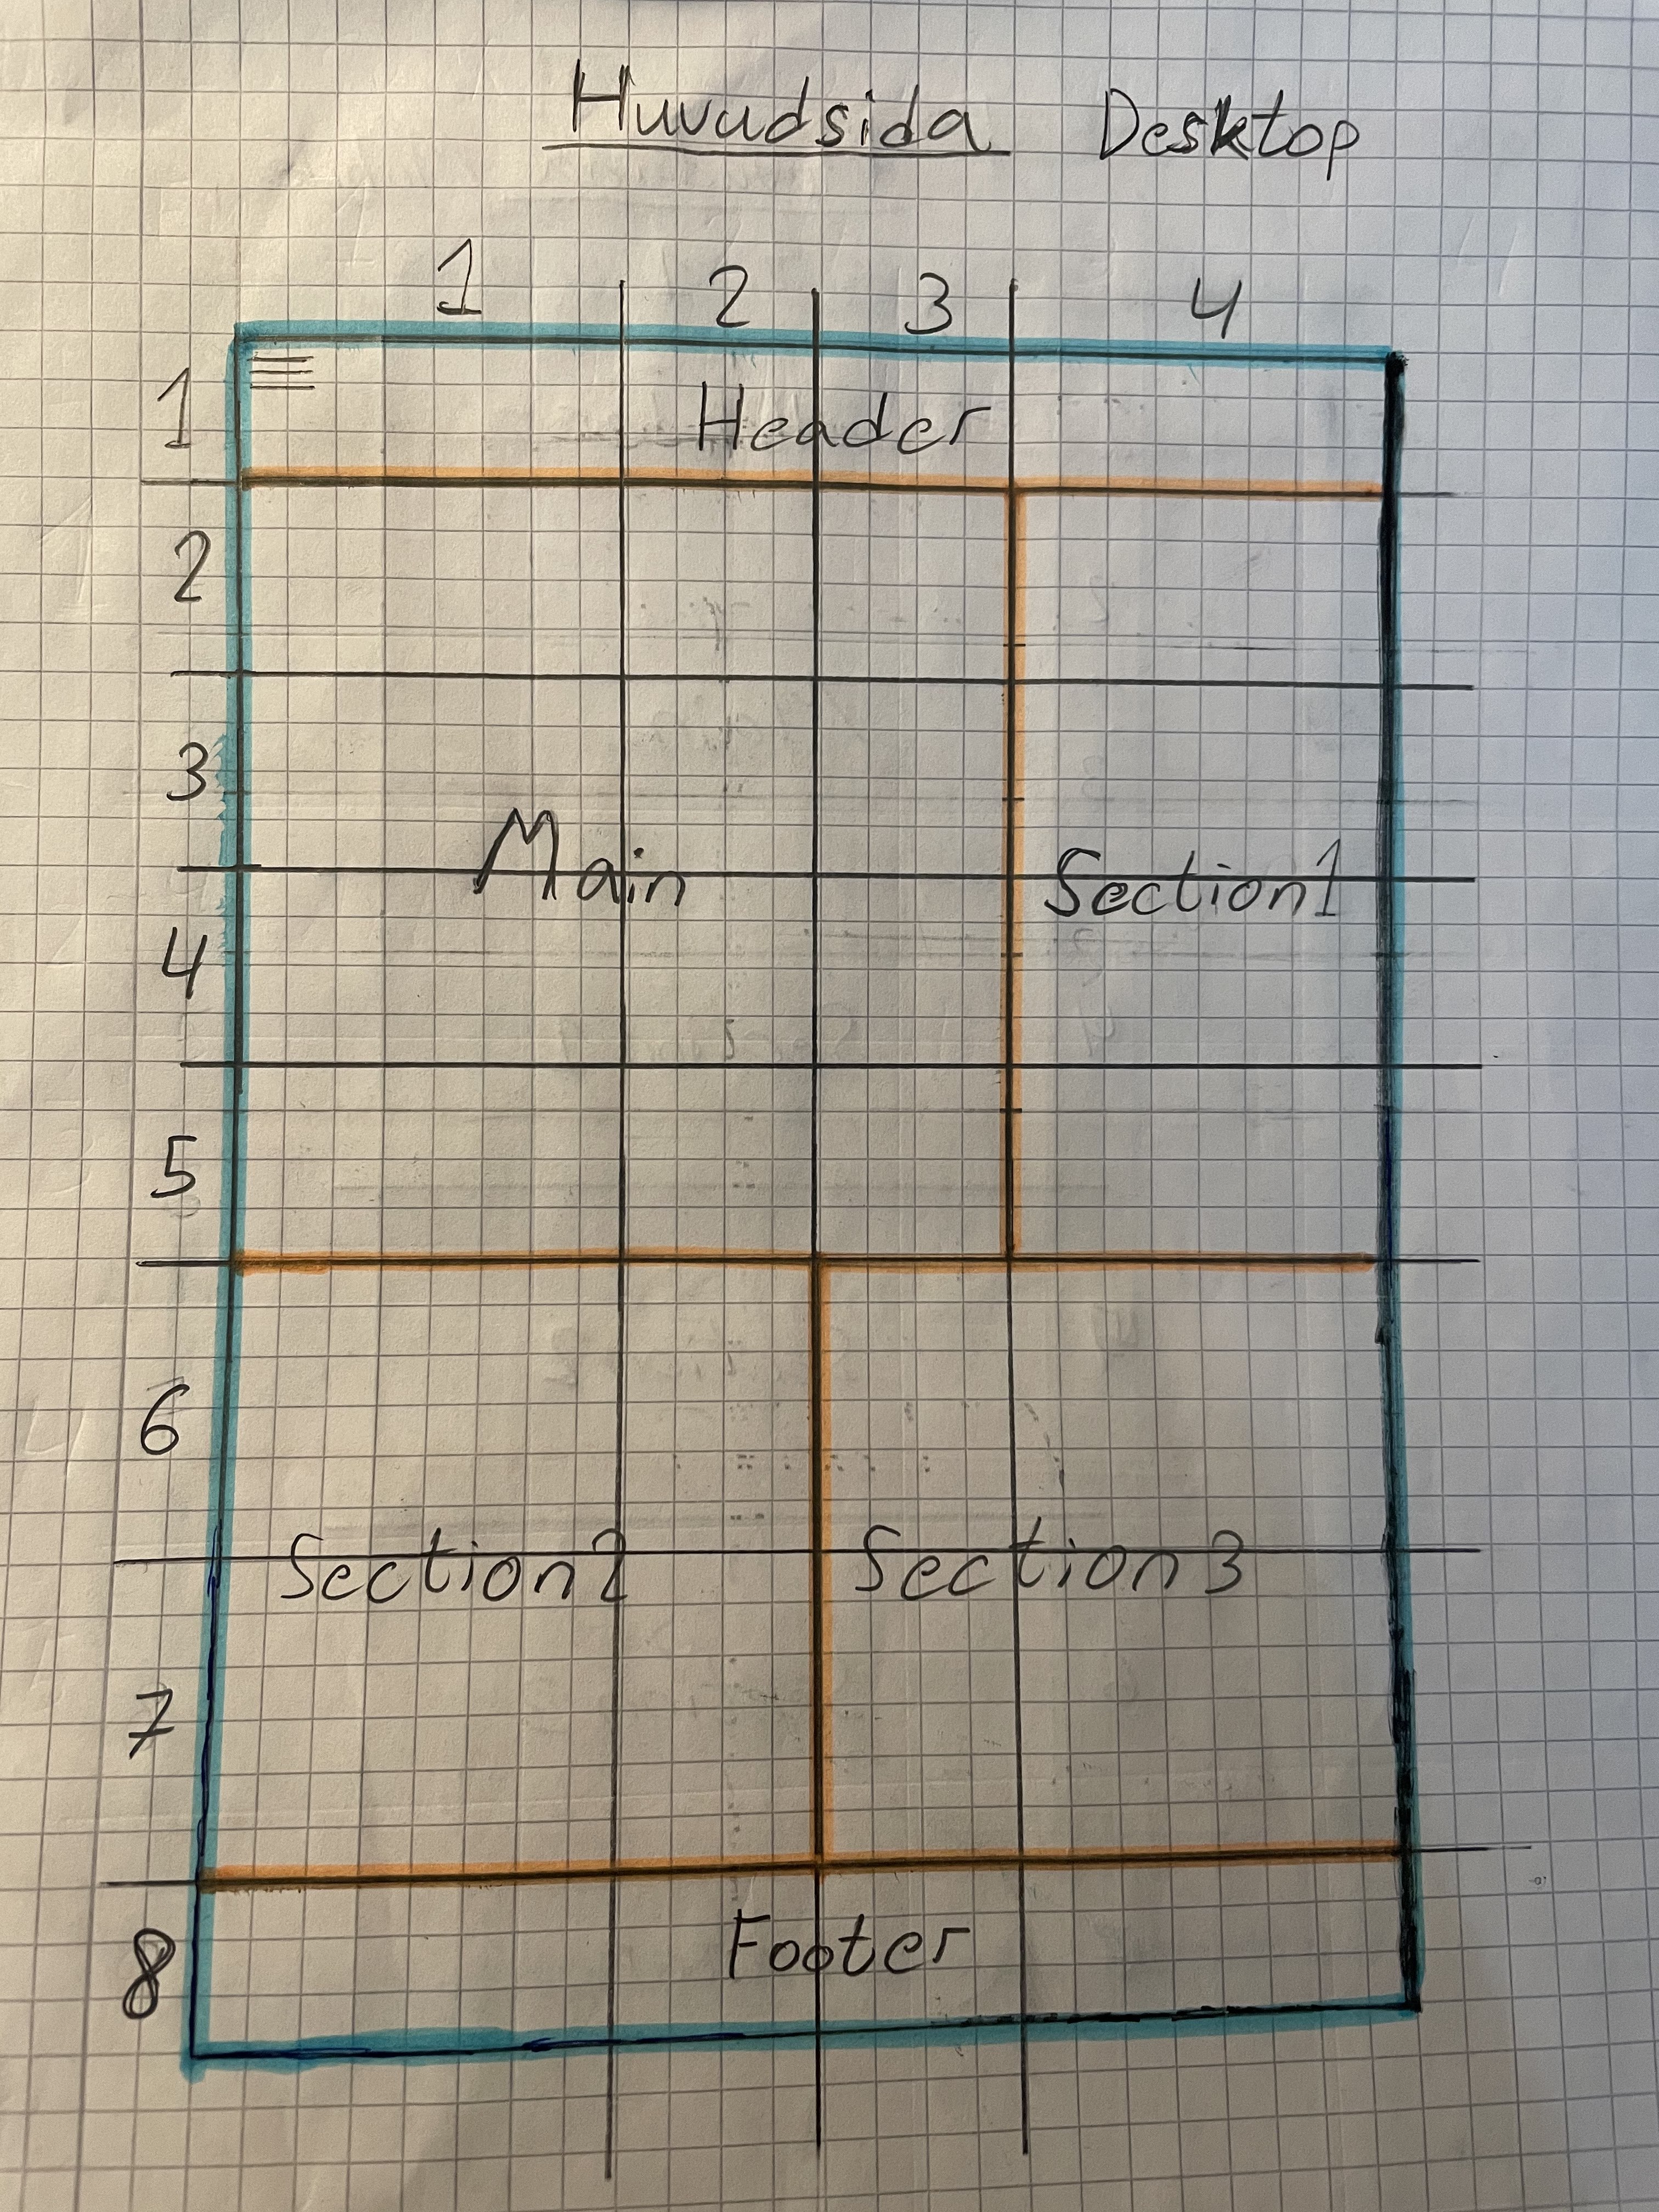 Huvudsida Desktop
1 2 3 4
1
Header
2
3
Main
Section1
4
5
6
Section2
Section3
7
Footer
8